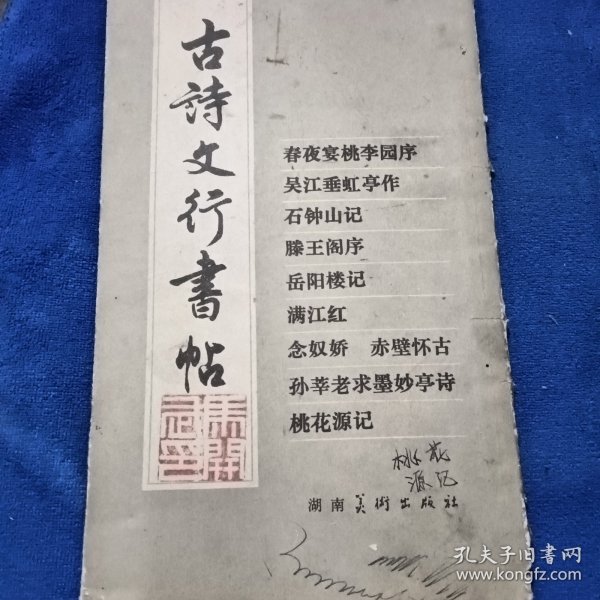 古詩文行書帖
春夜宴桃李园序
吴江垂虹亭作
石钟山记
滕王阁序
岳阳楼记
满江红
念奴娇 赤壁怀古
孙莘老求墨妙亭诗
桃花源记
桃花
源记
湖南美術出版社
孔夫子旧书网
www.kongfz.com